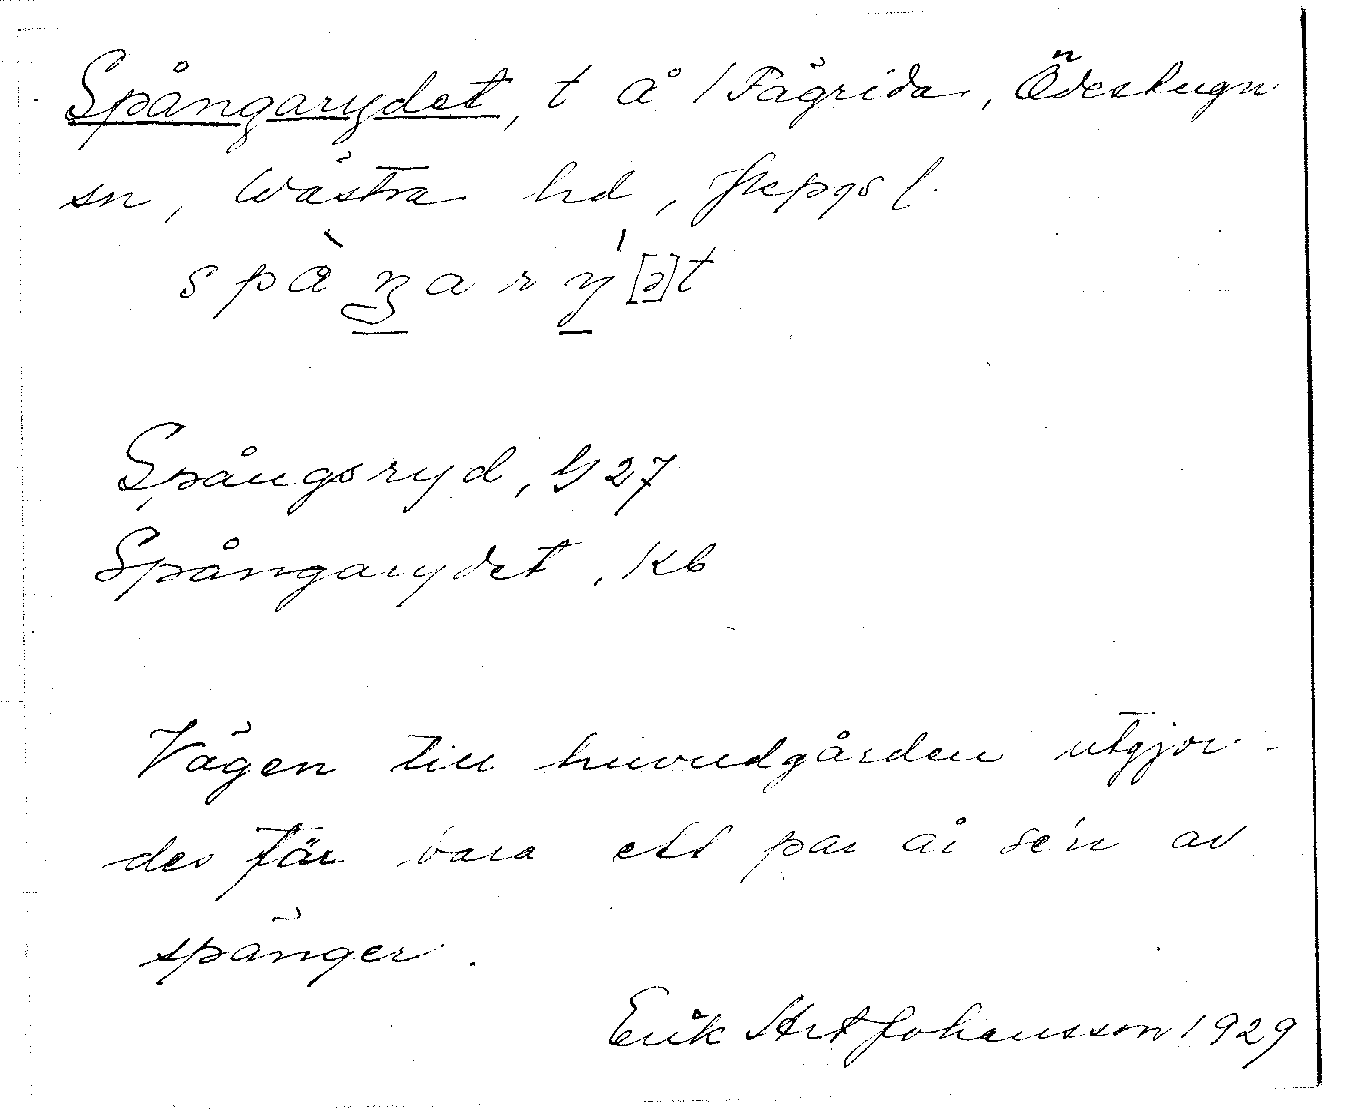 Spångarydet, t å /Fågrida, Ödeshugn
sn, Västra hd,
spåŋarý[ə]t
Spångsryd, G 27
Spångarydet, Kb
Vägen till huvudgården utgjor-
des för bara ett par år se'n av
spänger.
Erik Art Johansson 1929